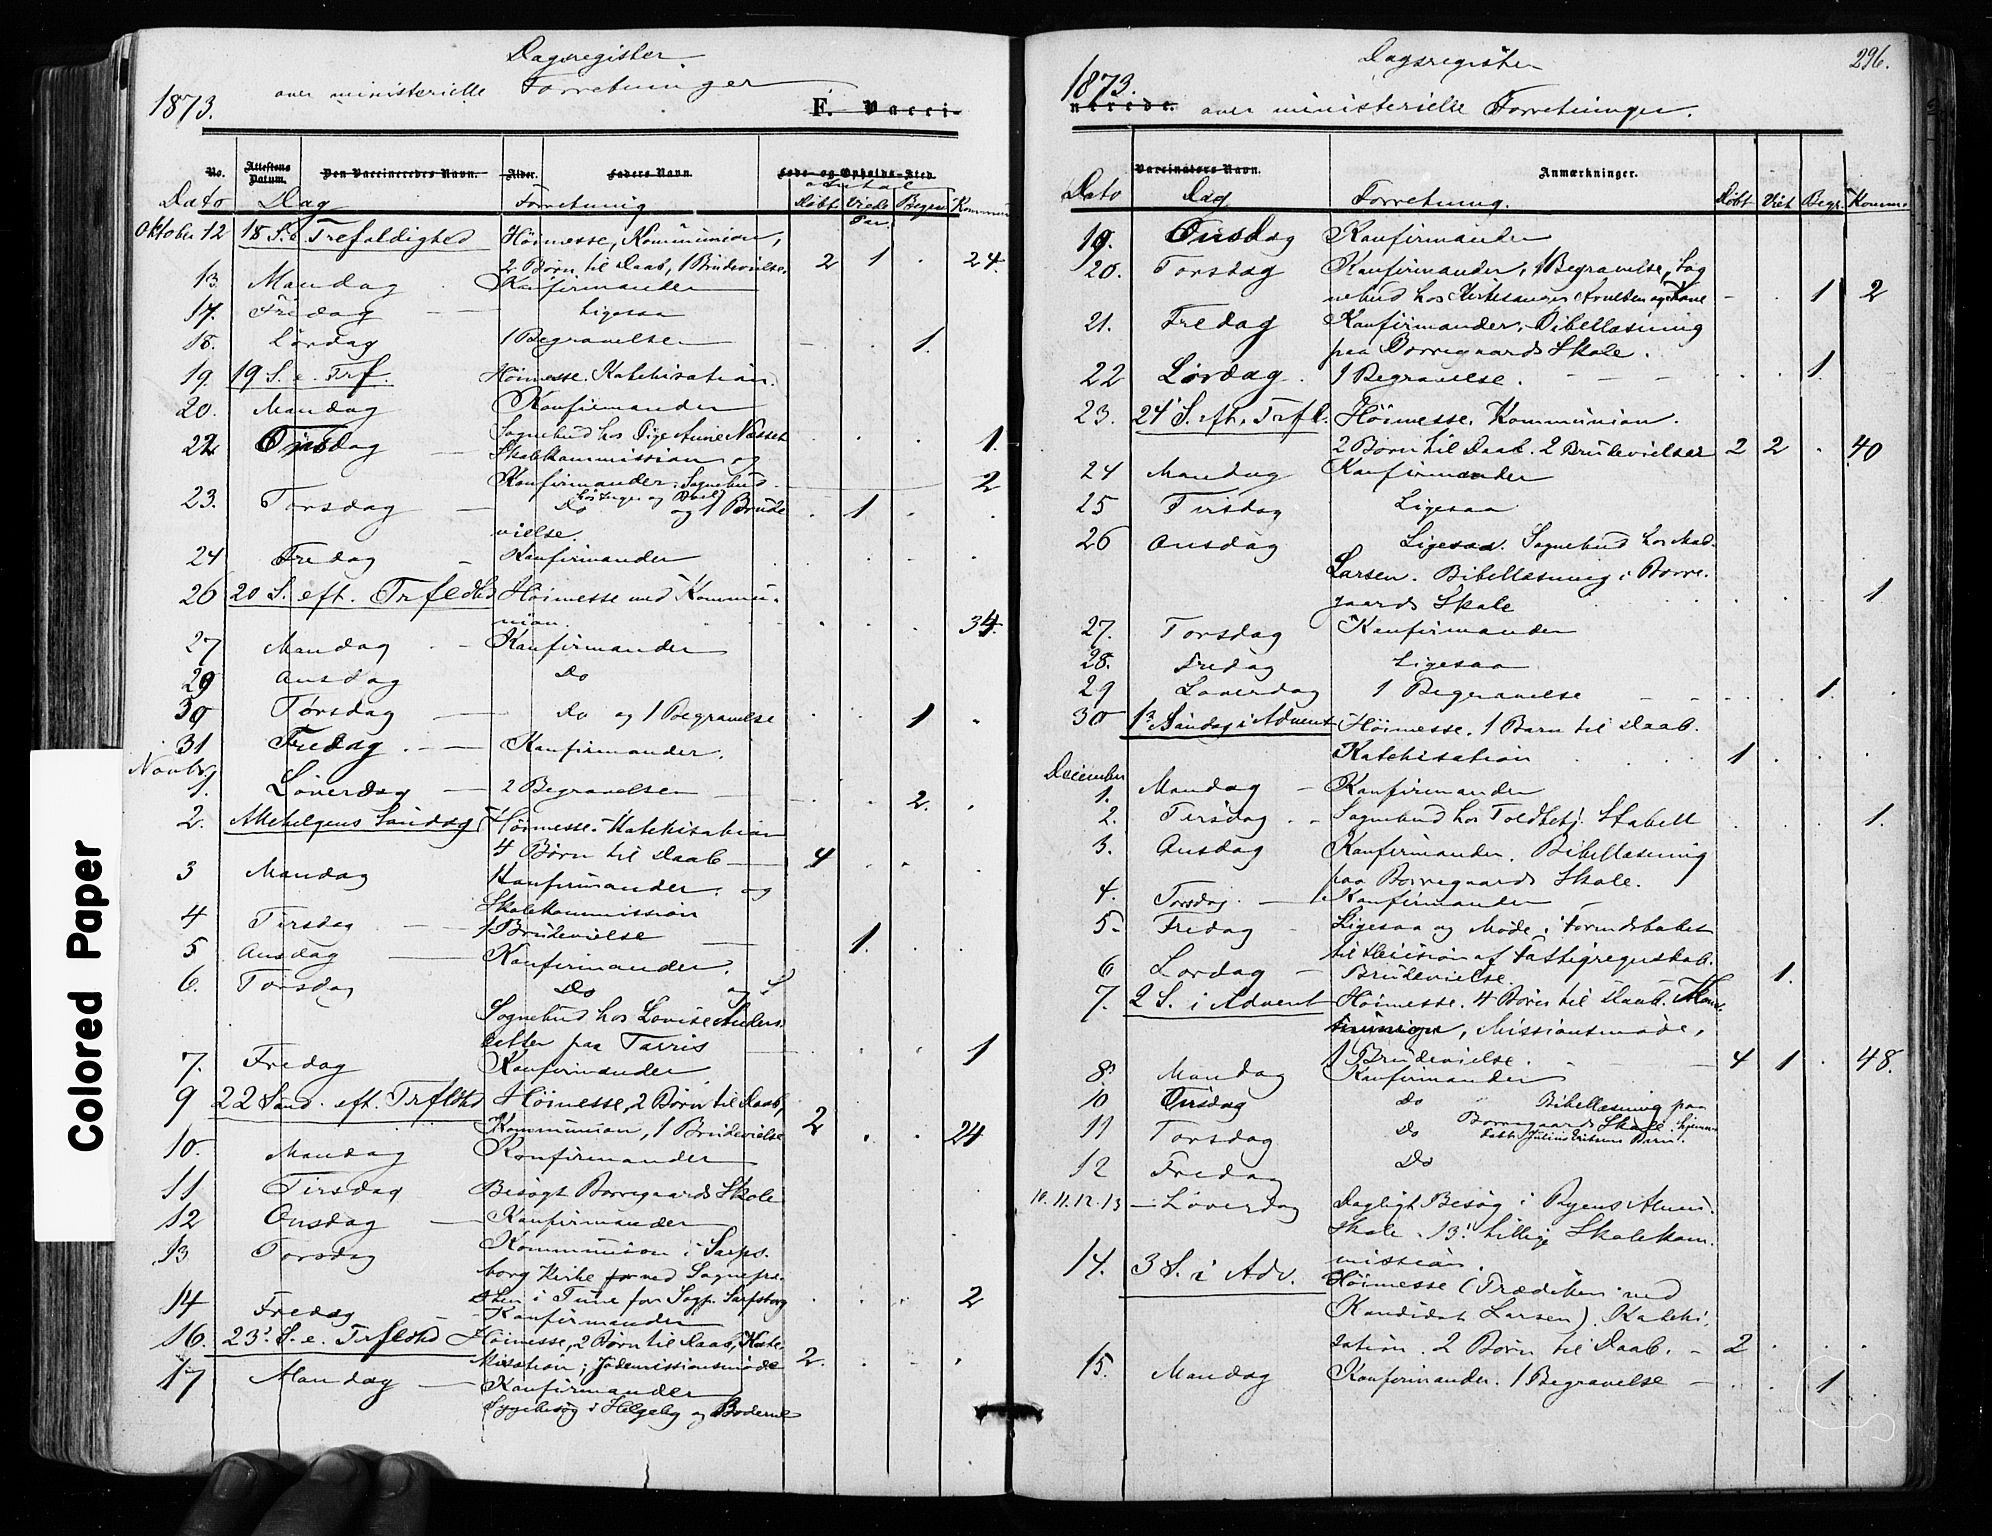 Dagsregister
over ministerielle Forretninger
1873.
F. Vacci-
No. Attestens Datum. Den Vaccineredes Navn. Alder. Faders Navn. Føde- og Opholds-Sted.
Antal
Dato Dag Forretning Døbt Viede Par. Begr. Kommun
Oktober 12 18 S. e. Trefoldighed Höimesse, Kommunion,
2 Børn til Daab, 1 Brudevielse 2 1 . 24.
13 Mandag Konfirmander
17. Fredag Ligesaa
18. Lördag 1 Begravelse 1.
19. 19 S. e. Trf. Höimesse. Katekisation.
20. Mandag Konfirmander
22 Onsdag Sognebud hos Pige Anne Næsset 1.
Skolekommission og
Konfirmander. Sognebud 2
23. Torsdag Do og 1 Brude 1
vielse.
24 Fredag Konfirmander
26 20 S. eft. Trfldhd Höimesse med Kommu-
nion. 34.
27 Mandag Konfirmander
29 Onsdag Do
30 Torsdag Do og 1 Begravelse 1
31 Fredag Konfirmander.
Novbr
1. Löverdag 2 Begravelser 2.
2. Allehelgens Söndag Höimesse. Katekisation
4 Børn til Daab 4
3 Mandag Konfirmander og
Skolekommission
4 Tirsdag 1 Brudevielse 1.
5 Onsdag Konfirmander.
6. Torsdag Do og
Sognebud hos Lovise Anders
datter paa Tarris 1
7. Fredag Konfirmander
9 22 Sønd. eft. Trfldhd Höimesse, 2 Børn til Daab,
Kommunion, 1 Brudevielse 2 . . 24
10. Mandag Konfirmander
11 Tirsdag Besögt Borregaards Skole
12 Onsdag Konfirmander
13 Torsdag Kommunion i Sarps-
borg Kirke ved Sognepræ-
sten i Tune for Sogp. Sarpsborg 2
14 Fredag Konfirmander
16. 23' S. e. Trfldhd Höimesse, 2 Børn til Daab, Kate-
kisation; Jødemissionsmøde 2.
17 Mandag Konfirmander
Sygebesög i Helgeby og Boderne
296.
Dagsregister
1873.
nerede. over ministerielle Forretninger.
Vaccinatørs Navn. Anmærkninger.
Dato Dag Forretning. Døbt Viet Begr. Kommu
19. Onsdag Konfirmander
20. Torsdag Konfirmander, 1 Begravelse, Sog
nebud hos Kirkesanger Arvesen og Kone 1 2
21. Fredag Konfirmander. Bibellæsning
paa Borregaards Skole.
22 Lördag. 1 Begravelse. 1.
23. 24' S. eft. Trfl. Höimesse. Kommunion.
2 Børn til Daab. 2 Brudevielser 2 2 . 40
24 Mandag Konfirmander
25 Tirsdag Ligesaa
26 Onsdag Ligesaa. Sognebud hos Mad.
Larsen. Bibellæsning i Borre-
gaards Skole 1
27. Torsdag Konfirmander
28. Fredag Ligesaa
29 Loverdag 1 Begravelse 1.
30 1' Søndag i Advent Höimesse. 1 Barn til Daab.
Katekisation 1
December
1. Mandag Konfirmander
2. Tirsdag Sognebud hos Toldbetj. Stabell 1.
3. Onsdag Konfirmander. Bibellæsning
paa Borregaards Skole.
4. Torsdag. Konfirmander
5. Fredag Ligesaa og Møde i Formdskabet
til Decision af Fattigregnskab.
6 Lordag Brudevielse. 1.
7. 2 S. i Advent Höimesse. 4 Børn til Daab. Kom-
munion, Missionsmøde,
1 Brudevielse. 4 1 . 48.
8. Mandag Konfirmander
10 Onsdag Do Bibellæsning paa
Borregaards Skole.
11 Torsdag Do
12 Fredag Do
10. 11. 12. 13 Löverdag Dagligt Besög i Ryens Almu.
Skole. 13' tillige Skolekom-
mission.
14. 3 S. i Adv. Höimesse (Prædiken ved
Kandidat Larsen). Kateki-
sation. 2 Børn til Daab. 2
15. Mandag Konfirmander. 1 Begravelse 1
Colored Paper